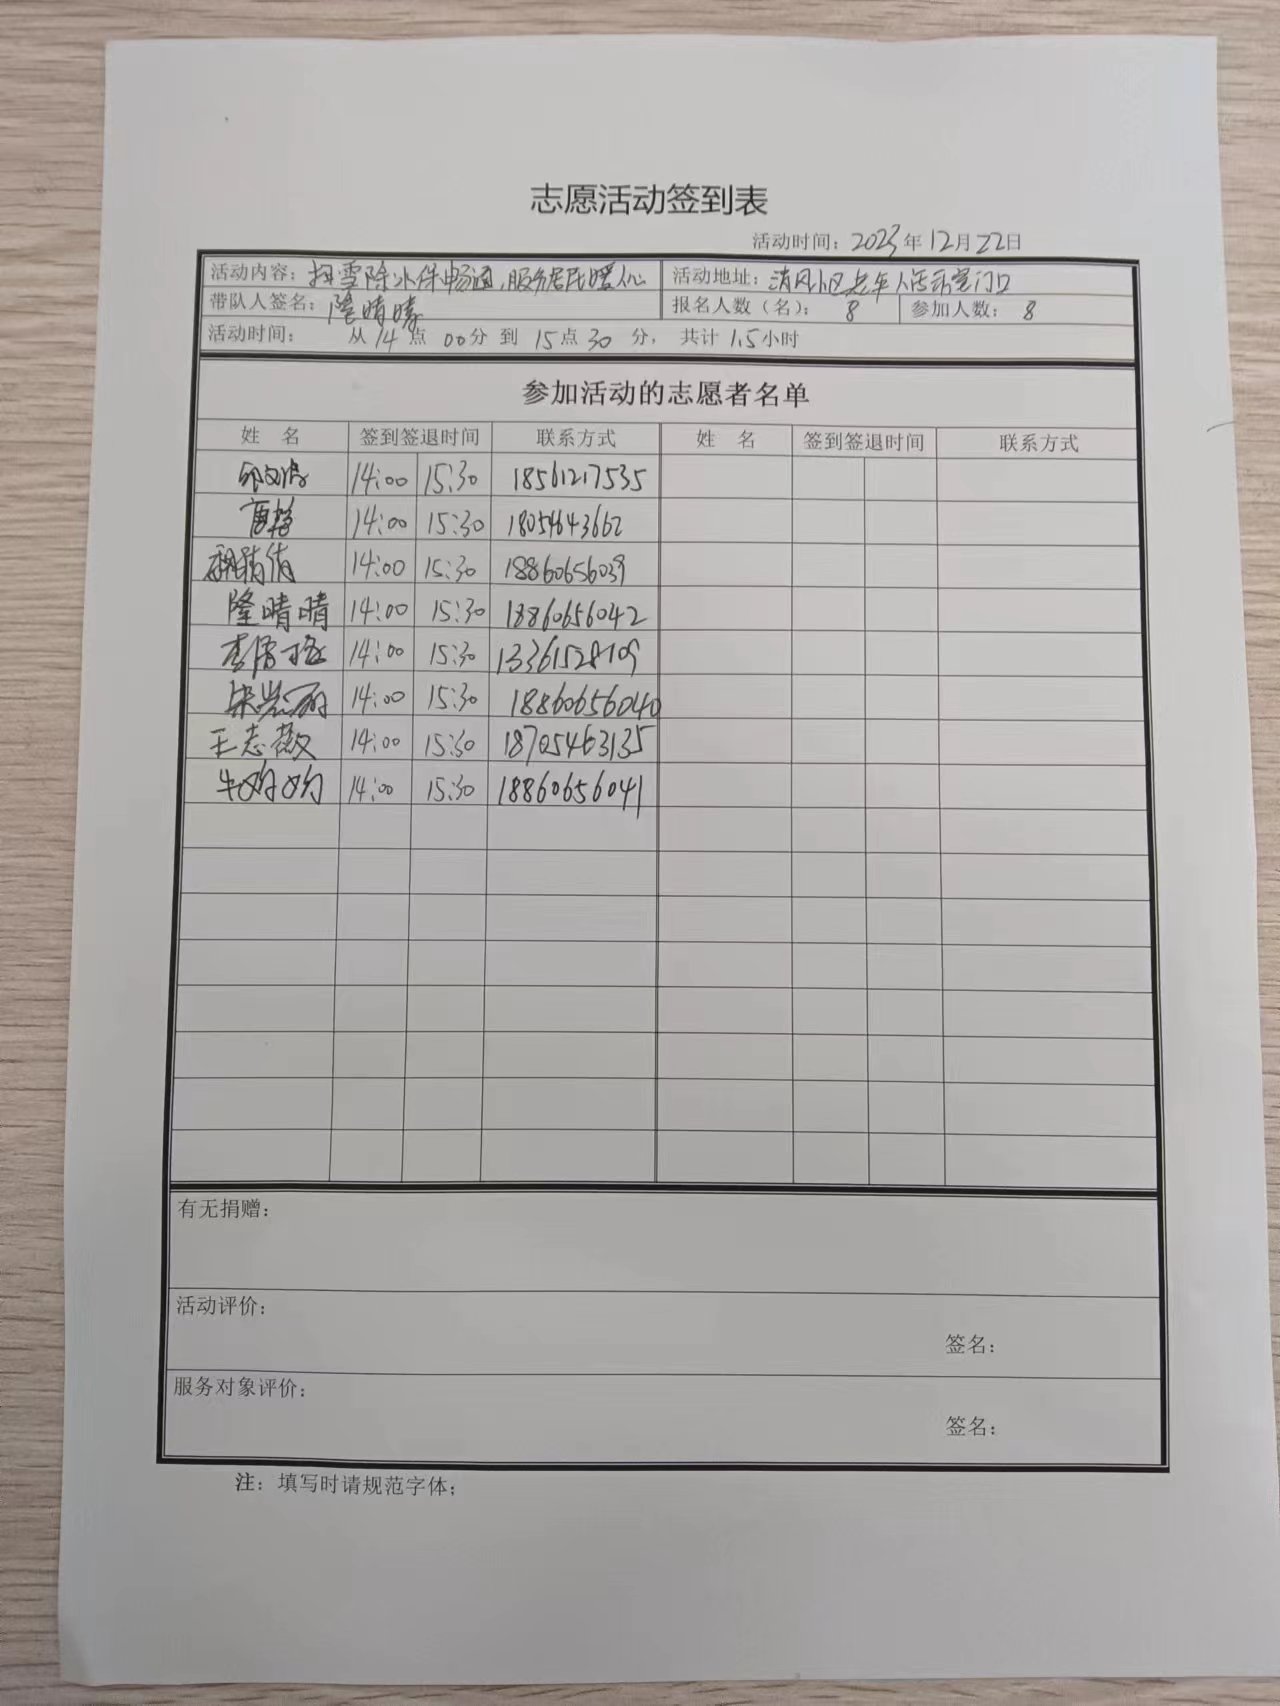 志愿活动签到表
活动时间：2023年12月22日
活动内容：扫雪除冰保畅通，服务居民暖人心 活动地址：清风小区老年人活动室门口
带队人签名：隆晴晴 报名人数（名）：8 参加人数：8
活动时间： 从14点00分到15点30分，共计1.5小时
参加活动的志愿者名单
姓 名 签到签退时间 联系方式 姓 名 签到签退时间 联系方式
14:00 15:30 18561217535
14:00 15:30 18054643662
14:00 15:30 18860656039
隆晴晴 14:00 15:30 18860656042
14:00 15:30 13361528109
14:00 15:30 18860656040
王志薇 14:00 15:30 18705463135
14:00 15:30 18860656041
有无捐赠：
活动评价：
签名：
服务对象评价：
签名：
注：填写时请规范字体；